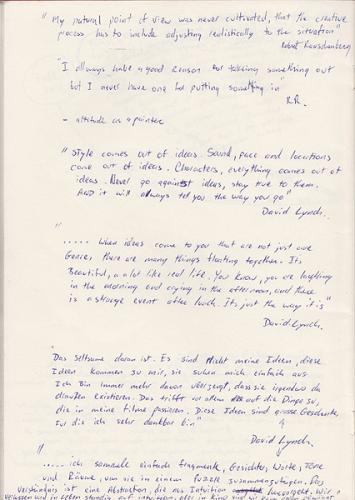 "My natural point of view was never cultivated, that the creative
process has to include adjusting realistically to the situation
Robert Rauschenberg
"I allways have a good reason for taking something out
but I never have one for putting something in"
R.R.
- attitude as a painter
"Style comes out of ideas. Sound, pace and locations
come out of ideas. Characters, everything comes out of
ideas. Never go against ideas, stay true to them.
AND it will always tell you the way you go"
David Lynch.
"
..... when ideas come to you that are not just one
Genre, there are many things floating together. Its
Beautiful, a lot like real life. You know, you are laughing
in the morning and crying in the afternoon, and there
is a strange event after lunch. Its just the way it is"
David Lynch.
"
Das seltsame daran ist. Es sind Nicht meine Ideen, diese
Ideen kommen zu mir, sie suchen mich einfach aus
Ich Bin Immer mehr davon überzeugt, dass sie irgendwo da
draußen existieren. Das trifft vor allem auf die Dinge zu,
die in meine Filme passieren. Diese Ideen sind grosse Geschenke,
für die ich sehr dankbar bin"
David Lynch.
"
..... ich sammele einfach fragmente, Gesichter, Worte, Töne
und Räume, um sie in einem Puzzle zusammenzufügen. Das
Verständnis ist eine Abstraktion, die aus Intuition hervorgeht. Wir